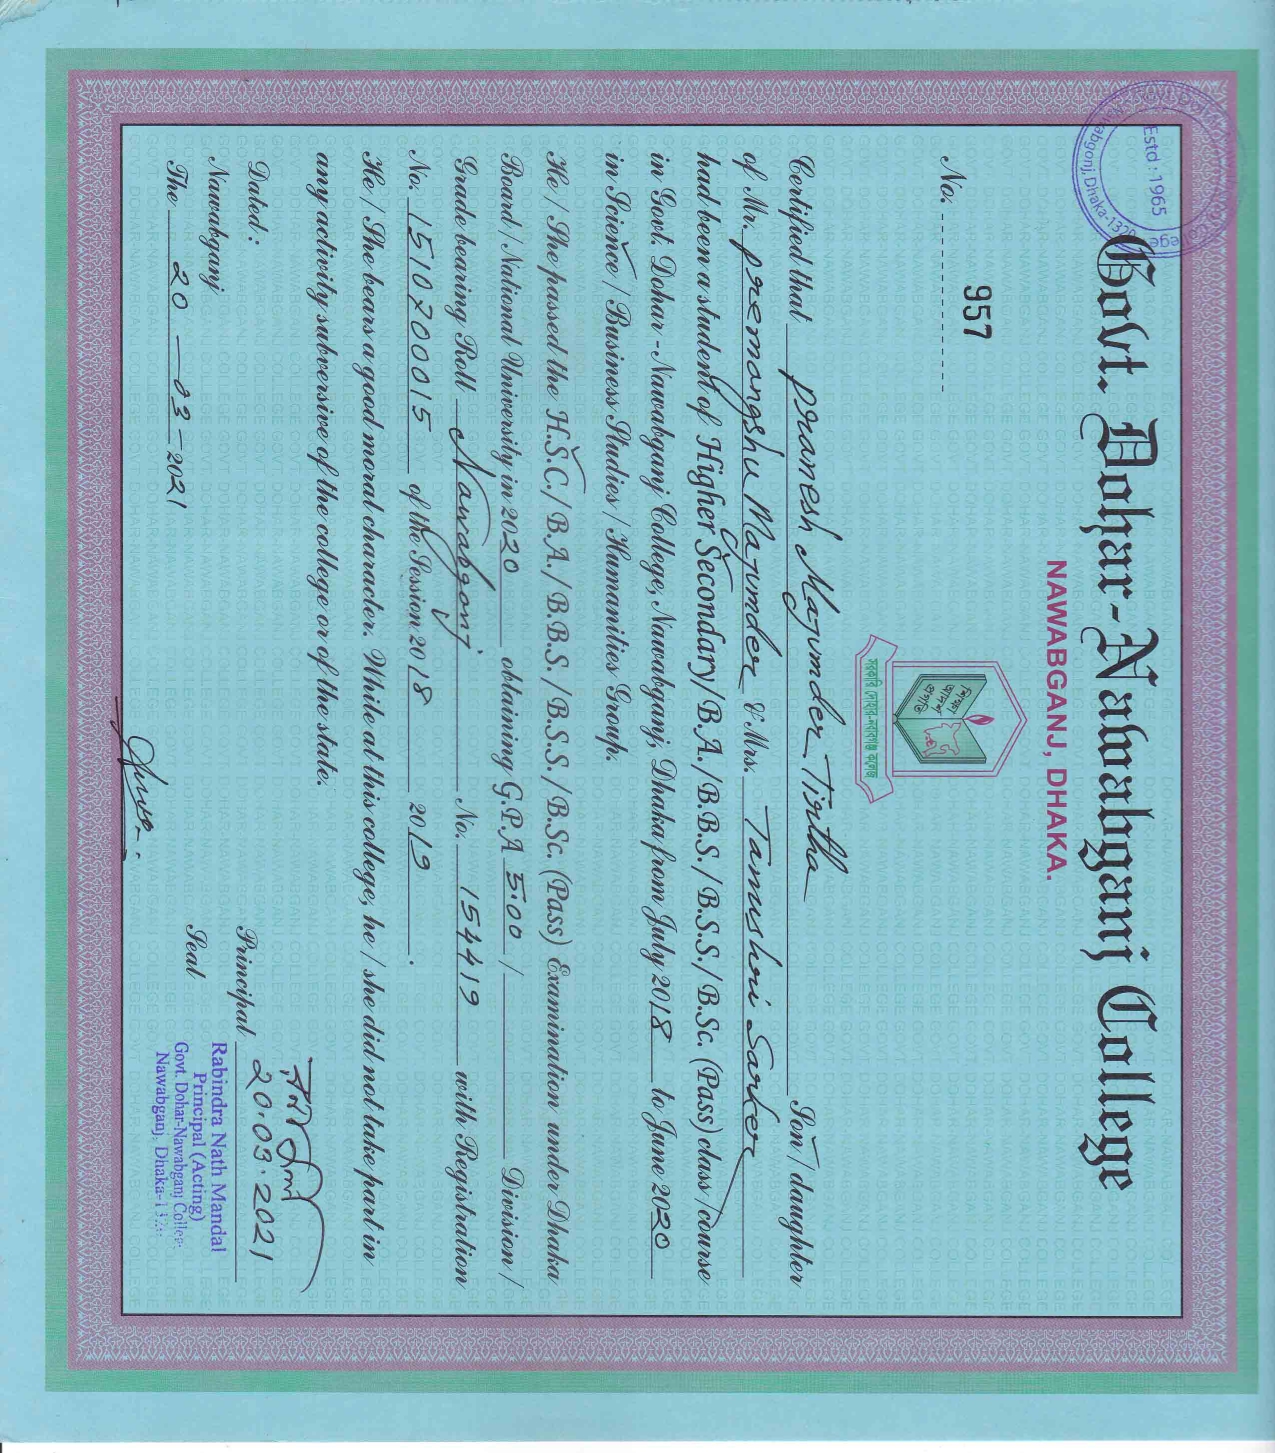 Estd : 1965
Nawabgonj, Dhaka-1320
Govt. Dohar-Nawabganj College
NAWABGANJ, DHAKA.
No. 957
শিক্ষা
আদর্শ
প্রগতি
সরকারি দোহার-নবাবগঞ্জ কলেজ
Certified that Pranesh Majumder Tirtha Son / daughter
of Mr. Premangshu Majumder & Mrs. Tanushri Sarker
had been a student of Higher Secondary/B.A./B.B.S./B.S.S./B.Sc. (Pass) class /course
in Govt. Dohar -Nawabganj College, Nawabganj, Dhaka from July 2018 to June 2020
in Science / Business Studies / Humanities Group.
He / She passed the H.S.C./B.A./B.B.S./B.S.S./B.Sc. (Pass) Examination under Dhaka
Board / National University in 2020 obtaining G.P.A 5.00 / Division /
Grade bearing Roll Nawabgonj No. 154419 with Registration
No. 1510700015 of the Session 2018 2019 .
He / She bears a good moral character. While at this college, he / she did not take part in
any activity subversive of the college or of the state.
Dated :
Nawabganj
The 20 - 03 - 2021
20.03.2021
Principal
Seal
Rabindra Nath Mandal
Principal (Acting)
Govt. Dohar-Nawabganj College
Nawabganj, Dhaka-1320